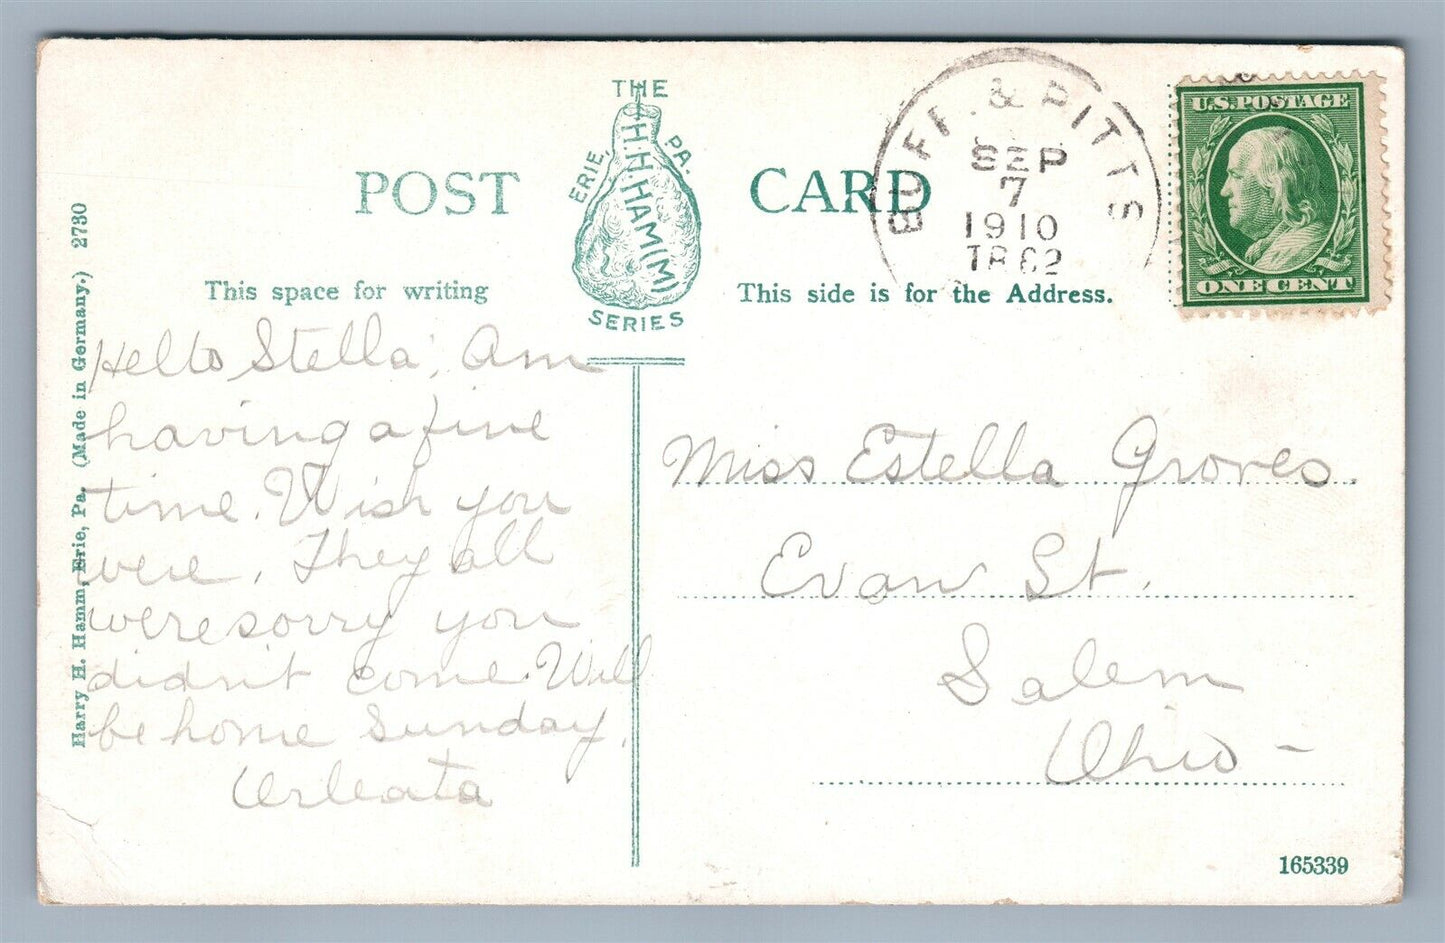 THE
H.H. HAM(M)
ERIE, PA.
SERIES
POST CARD
This space for writing
This side is for the Address.
BUFF. & PITTS
SEP
7
1910
U.S. POSTAGE
ONE CENT
Harry H. Hamm, Erie, Pa. (Made in Germany.) 2730
Hello Stella; Am
having a fine
time. Wish you
were. They all
were sorry you
didn't come. Will
be home Sunday.
Miss Estella Groves.
Evan St.
Salem
Ohio –
165339